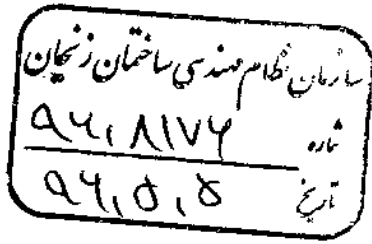 سازمان نظام مهندسی ساختمان زنجان
شماره ۹۶/۸۱۷۶
تاریخ ۹۶/۵/۵